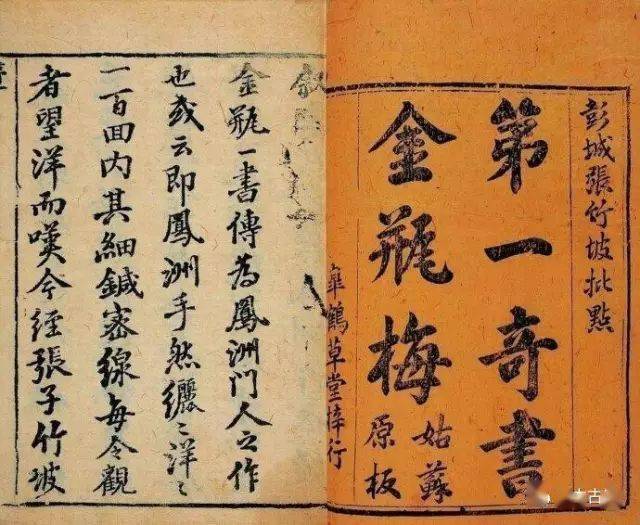 彭城張竹坡批點
第一奇書
金瓶梅
姑蘇
原板
鶴草堂梓行
金瓶一書傳為鳳洲門人之作
也或云即鳳洲手然纚〻洋〻
一百回内其細鍼密線每令觀
者望洋而嘆今經張子竹坡
古